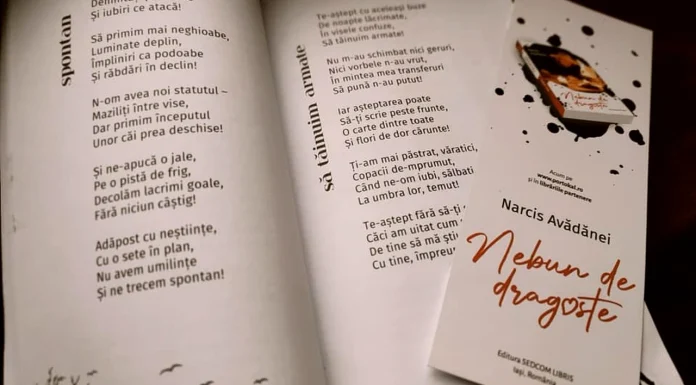 spontan
Și iubiri ce atacă!
Să primim mai neghioabe,
Luminate deplin,
Împliniri ca podoabe
Și răbdări în declin!
N-om avea noi statutul –
Maziliți între vise,
Dar primim începutul
Unor căi prea deschise!
Și ne-apucă o jale,
Pe o pistă de frig,
Decolăm lacrimi goale,
Fără niciun câștig!
Adăpost cu neștiințe,
Cu o sete în plan,
Nu avem umilințe
Și ne trecem spontan!
să tăinuim armate
Te-aștept cu aceleași buze
De noapte lăcrimate,
În visele confuze,
Să tăinuim armate!
Nu m-au schimbat nici geruri,
Nici vorbele n-au vrut,
În mintea mea transferuri
Să pună n-au putut!
Iar așteptarea poate
Să-ți scrie peste frunte,
O carte dintre toate
Și flori de dor cărunte!
Ți-am mai păstrat, văratici,
Copacii de-mprumut,
Când ne-om iubi, sălbati
La umbra lor, temut!
Te-aștept fără să-ți
Căci am uitat cum
De tine să mă ști
Cu tine, împreu
Nebun de
dragoste
Acum pe
www.portokal.ro
și în librăriile partenere
Narcis Avădănei
Nebun de
dragoste
Editura SEDCOM LIBRIS
Iași, România